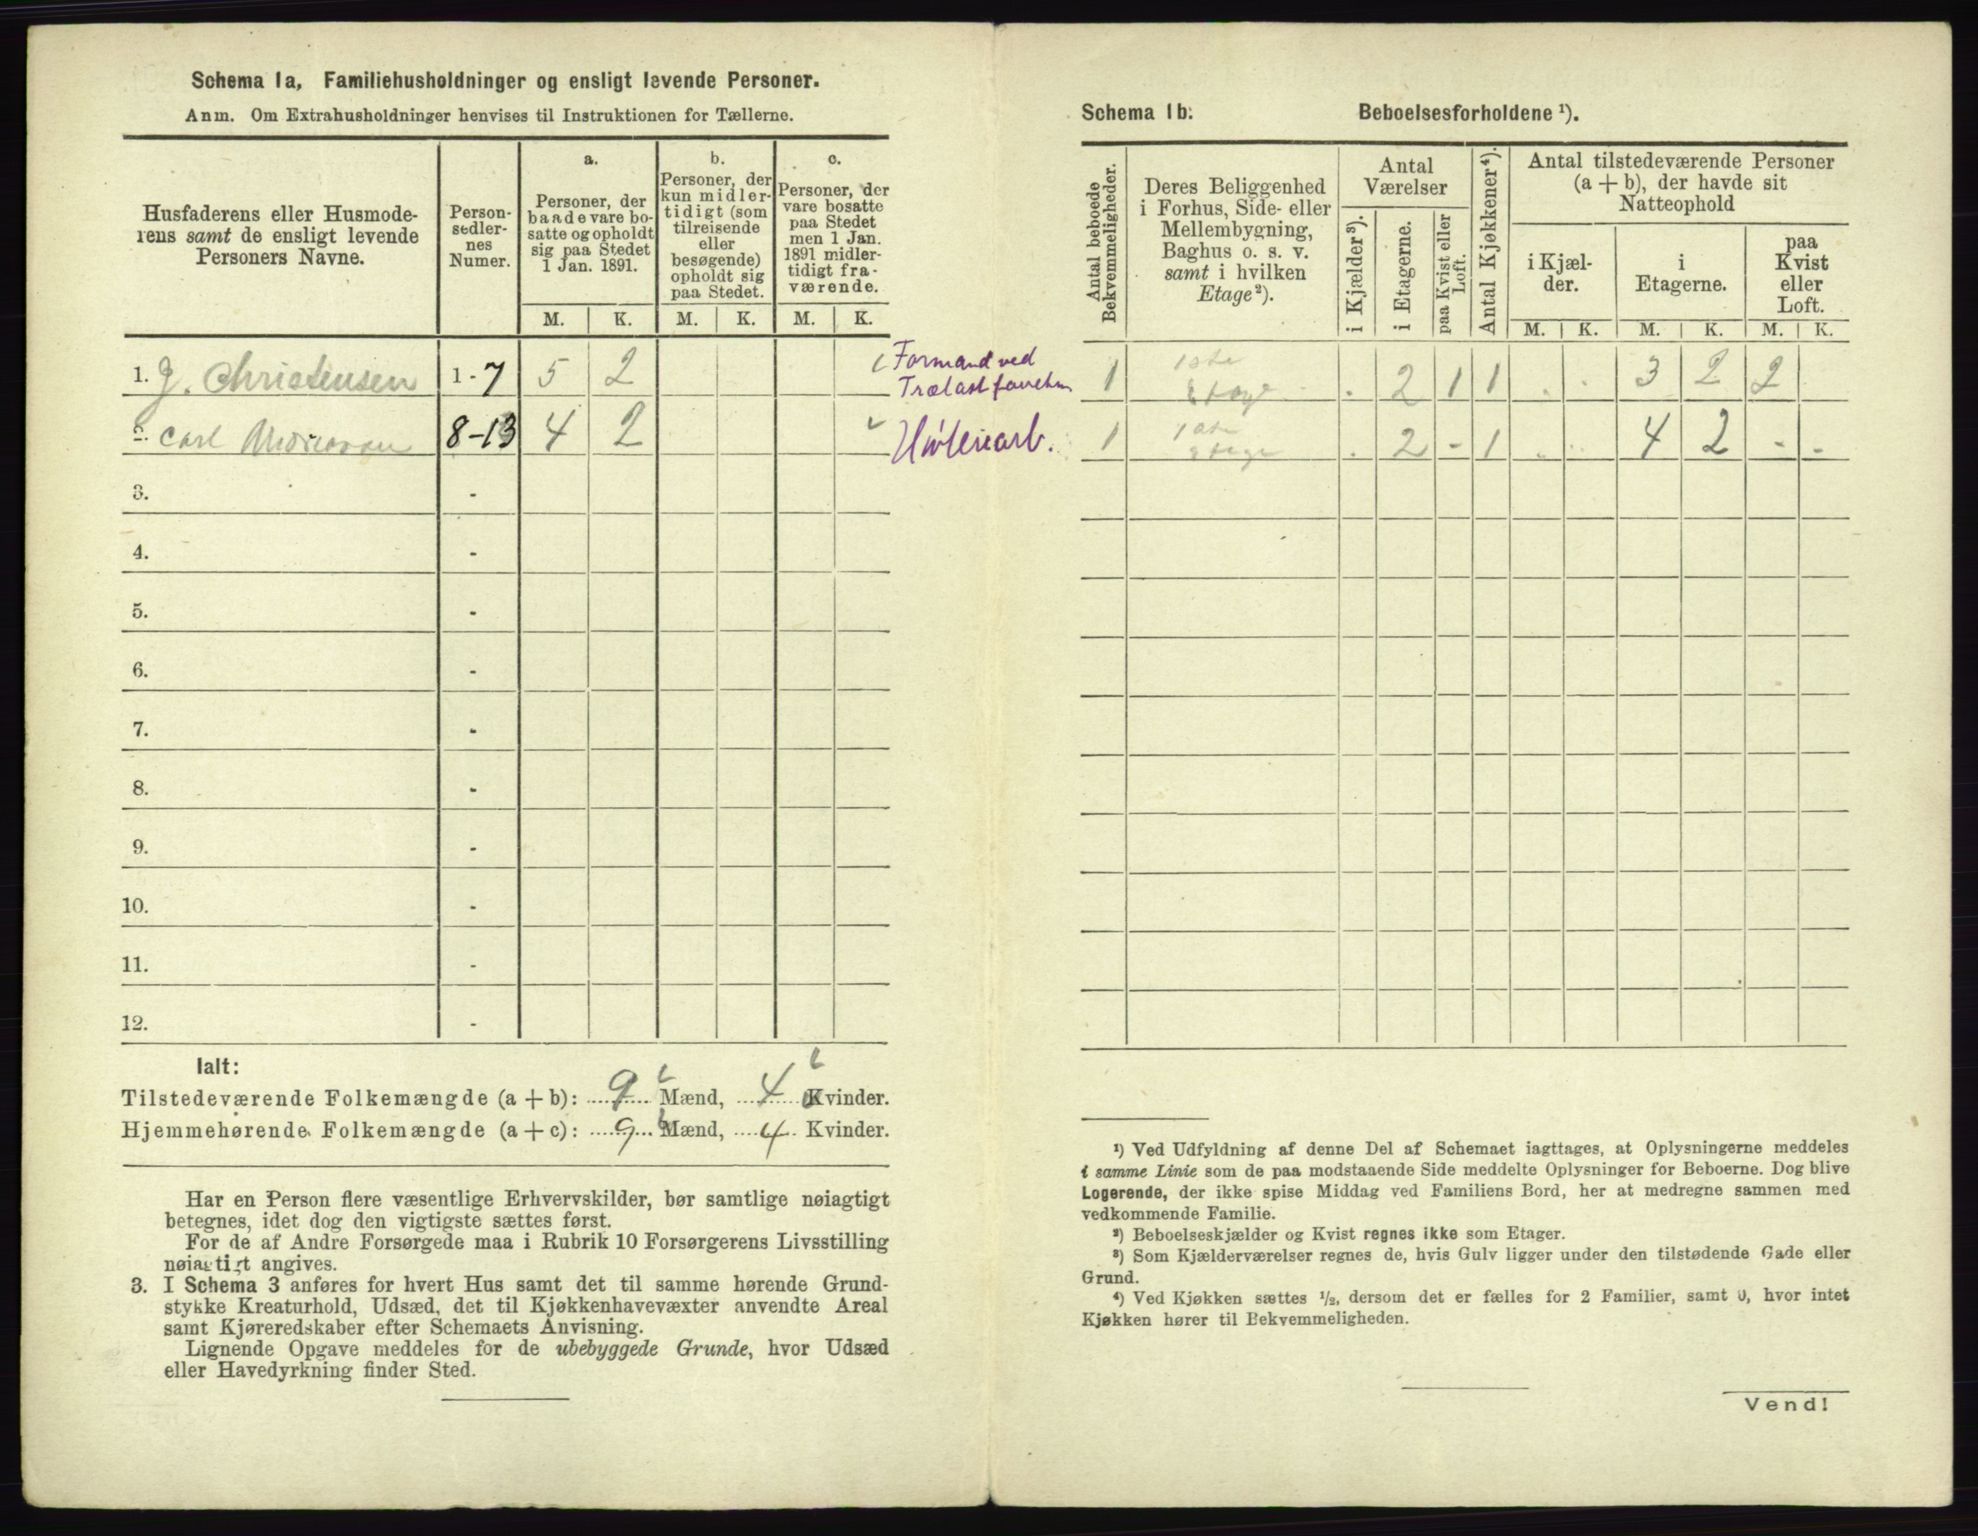 Schema 1a, Familiehusholdninger og ensligt levende Personer.
Anm. Om Extrahusholdninger henvises til Instruktionen for Tællerne.
Husfaderens eller Husmode-
rens samt de ensligt levende
Personers Navne.
Person-
sedler-
nes
Numer.
a.
Personer, der
baade vare bo-
satte og opholdt
sig paa Stedet
1 Jan. 1891.
b.
Personer, der
kun midler-
tidigt (som
tilreisende
eller
besøgende)
opholdt sig
paa Stedet.
c.
Personer, der
vare bosatte
paa Stedet
men 1 Jan.
1891 midler-
tidigt fra-
værende.
M. K. M. K. M. K.
1. J. Christensen 1-7 5 2
Formand ved
2. Carl 8-13 4 2
3. -
4. -
5. -
6. -
7. -
8. -
9. -
10. -
11. -
12. -
Ialt:
Tilstedeværende Folkemængde (a + b): 9 Mænd, 4 Kvinder.
Hjemmehørende Folkemængde (a + c): 9 Mænd, 4 Kvinder.
Har en Person flere væsentlige Erhvervskilder, bør samtlige nøiagtigt
betegnes, idet dog den vigtigste sættes først.
For de af Andre Forsørgede maa i Rubrik 10 Forsørgerens Livsstilling
nøiagtigt angives.
3. I Schema 3 anføres for hvert Hus samt det til samme hørende Grund-
stykke Kreaturhold, Udsæd, det til Kjøkkenhavevæxter anvendte Areal
samt Kjøreredskaber efter Schemaets Anvisning.
Lignende Opgave meddeles for de ubebyggede Grunde, hvor Udsæd
eller Havedyrkning finder Sted.
Schema 1b: Beboelsesforholdene ¹).
Antal beboede
Bekvemmeligheder.
Deres Beliggenhed
i Forhus, Side- eller
Mellembygning,
Baghus o. s. v.
samt i hvilken
Etage²).
Antal
Værelser
i Kjælder³).
i Etagerne.
paa Kvist eller
Loft.
Antal Kjøkkener⁴).
Antal tilstedeværende Personer
(a + b), der havde sit
Natteophold
i Kjæl-
der.
i
Etagerne.
paa
Kvist
eller
Loft.
M. K. M. K. M. K.
1 1ste Etage . 2 1 1 . . 3 2 2
1 1ste Etage . 2 - 1 . . 4 2 - -
¹) Ved Udfyldning af denne Del af Schemaet iagttages, at Oplysningerne meddeles
i samme Linie som de paa modstaaende Side meddelte Oplysninger for Beboerne. Dog blive
Logerende, der ikke spise Middag ved Familiens Bord, her at medregne sammen med
vedkommende Familie.
²) Beboelseskjælder og Kvist regnes ikke som Etager.
³) Som Kjælderværelser regnes de, hvis Gulv ligger under den tilstødende Gade eller
Grund.
⁴) Ved Kjøkken sættes ½, dersom det er fælles for 2 Familier, samt 0, hvor intet
Kjøkken hører til Bekvemmeligheden.
Vend!